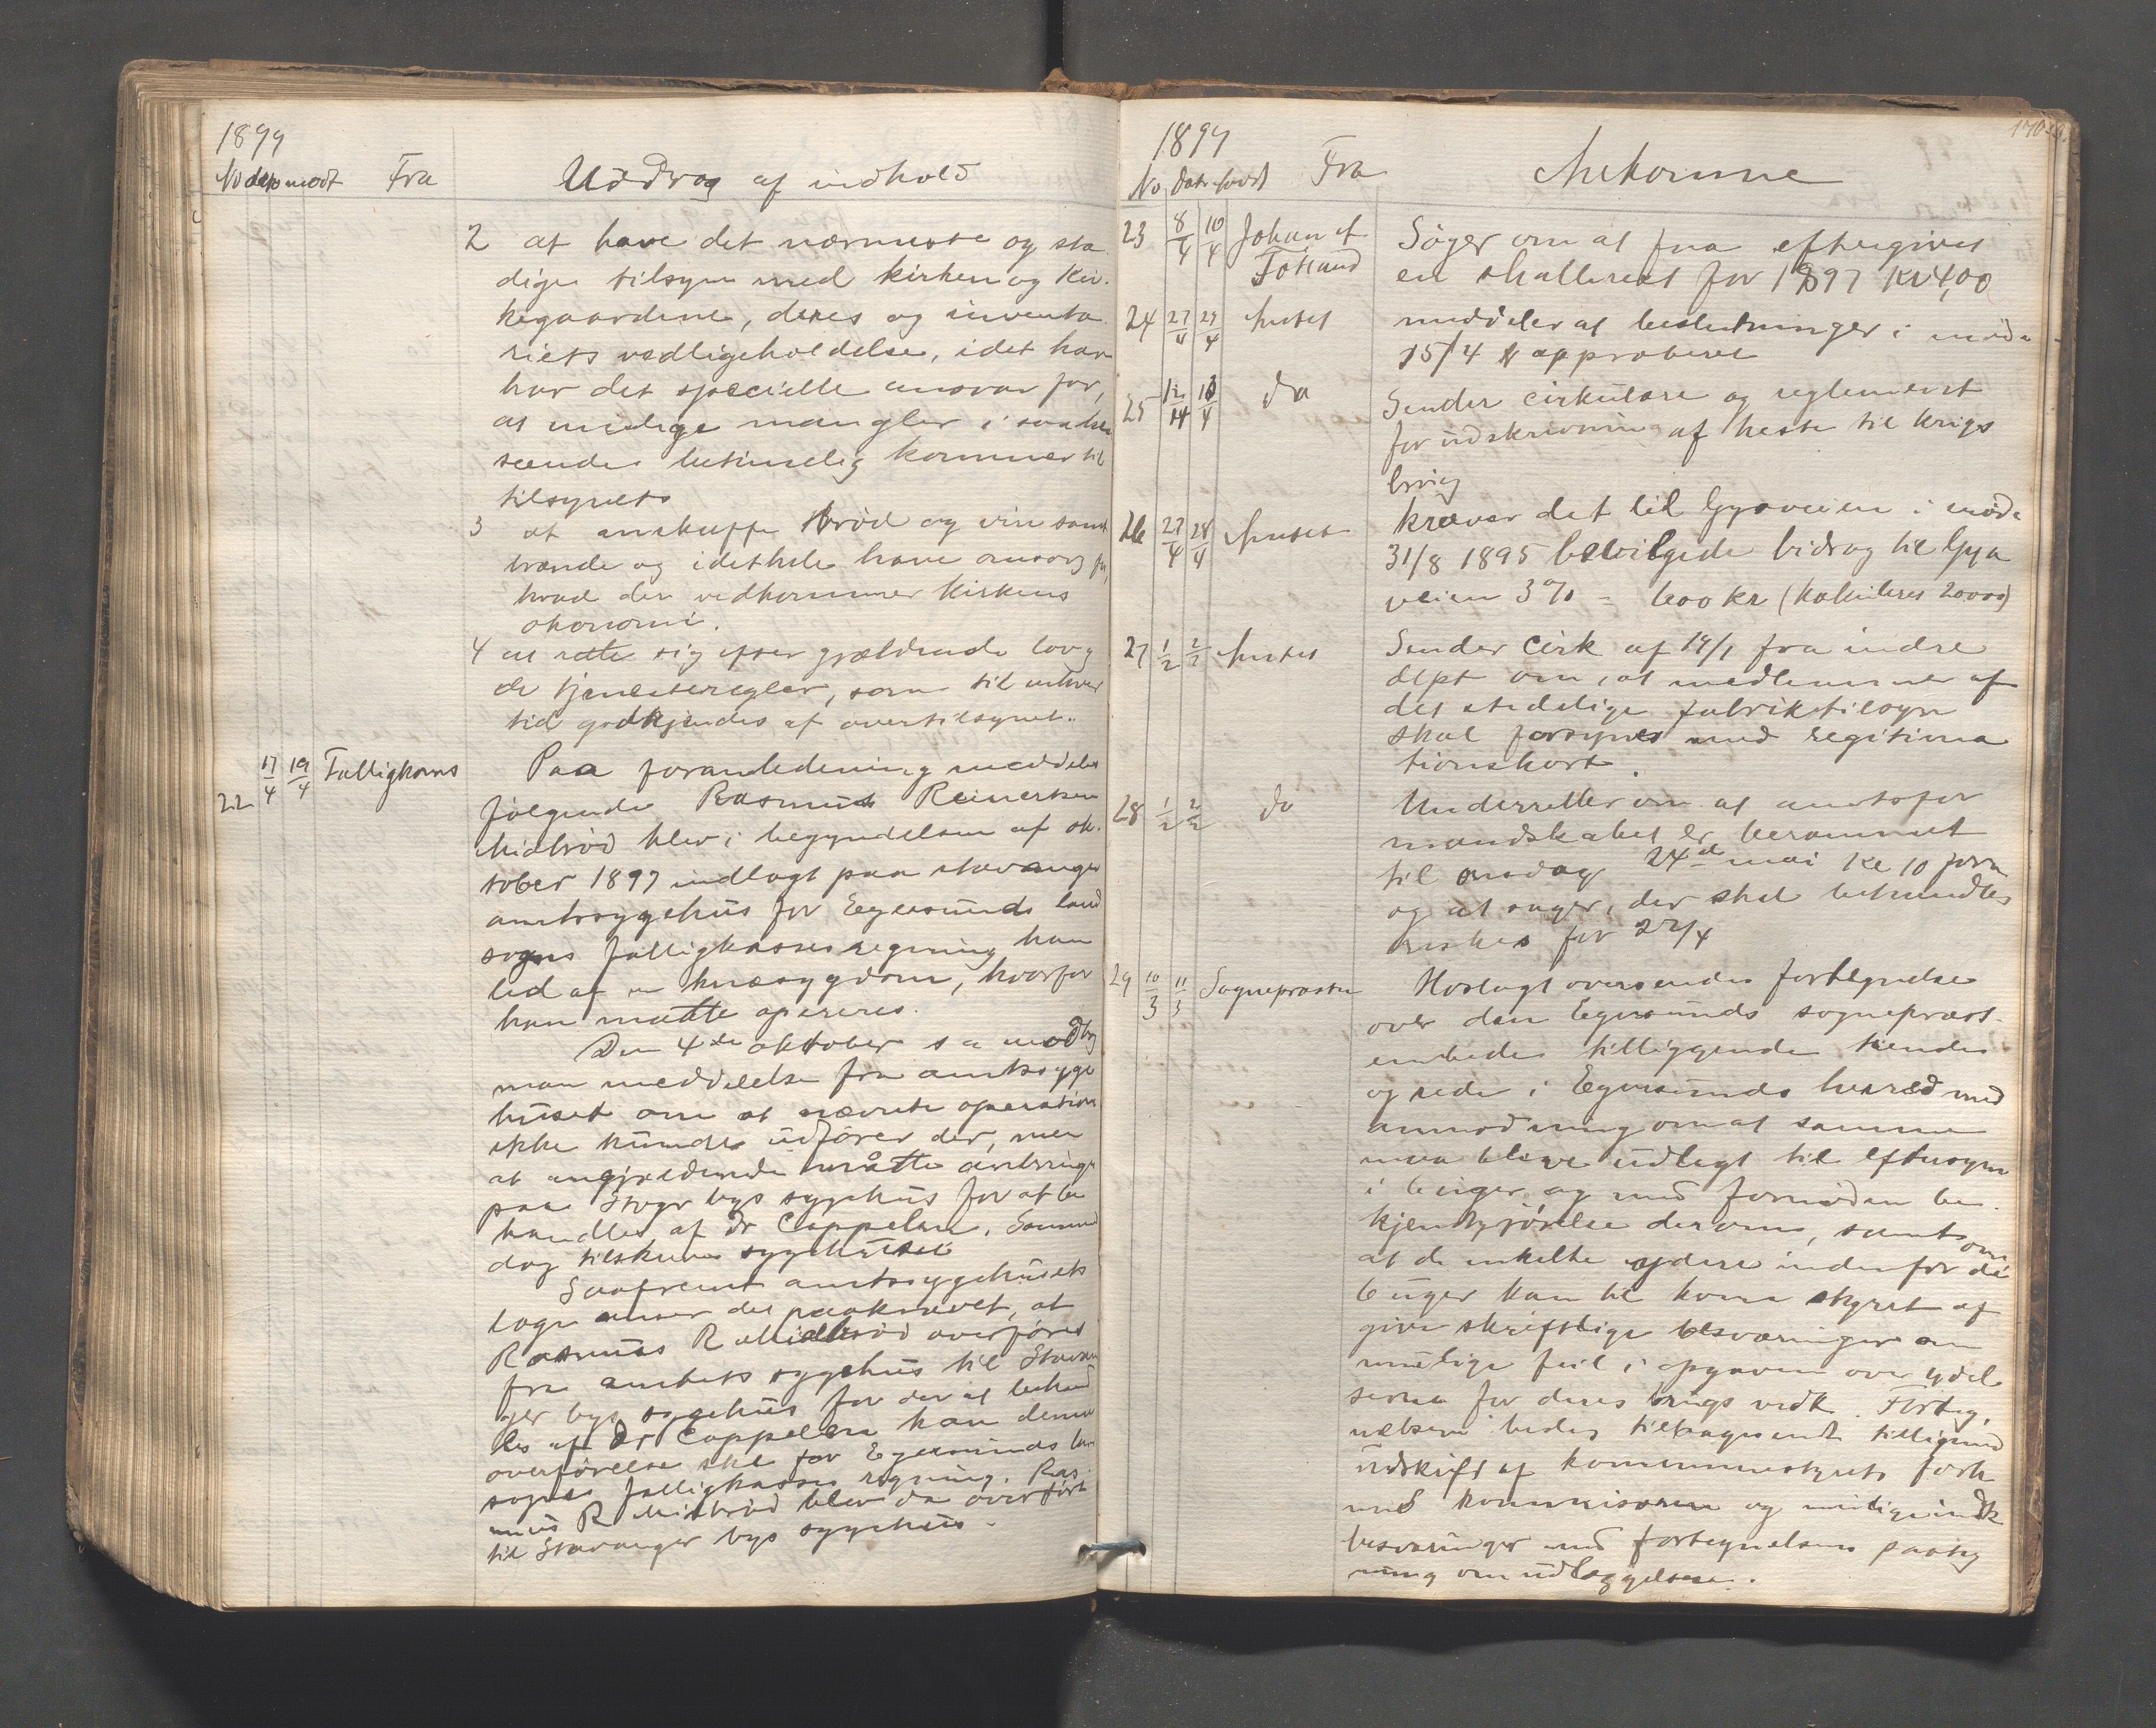 1899
No dato modt Fra Uddrag af indhold
2 at have det nærmeste og sta
dige tilsyn med kirken og kir-
kegaardene, deres og inventa
riets vedligeholdelse, idet han
har det specielle ansvar for,
at mulige mangler i saa hen
seende betimelig kommer til
tilsynets
3 at anskaffe brød og vin samt
brænde og idethele have omsorg for,
hvad der vedkommer kirkens
økonomi.
4 at rette sig efter gjældende lov og
de tjenesteregler, som til enhver
tid godkjendes af overtilsynet.
22 17/4 19/4 Fattigkoms Paa foranledening meddeles
følgende Rasmus Reinertsen
Midbrød blev i begyndelsen af ok-
tober 1897 indlagt paa stavanger
amtssygehus for Egersunds land
sogns fattigkasses regning han
led af en knæsygdom, hvorfor
han måtte opereres.
Den 4de oktober s a modtog
man meddelelse fra amtssyge
huset om at nævnte operation
ikke kunde udføres der, men
at angjældende måtte anbringes
paa Stvgr bys sygehus for at be
handles af Dr Cappelen. Samme
dag tilskrev sygehuset
Saafremt amtssygehusets
læge anser det paakrævet, at
Rasmus R Midbrød overføres
fra amtets sygehus til Stavan
ger bys sygehus for der at behand
les af Dr Cappelen kan denne
overførelse ske for Egersunds land
sogns fattigkasses regning. Ras
mus R Midbrød blev da overført
til Stavanger bys sygehus.
170
1899
No Dato modt Fra Ankomne
23 8/4 10/4 Johan et
Fotland Søger om at faa eftergivet
en skatterest for 1897 Kr 4,00
24 27/4 29/4 Amtet meddeler at beslutninger i møde
15/4 er approberet
25 12/4 13/4 do Sender cirkulære og reglement
for udskrivning af heste til krigs
brug
26 27/4 28/4 Amtet kræver det til Gyaveien i møde
31/8 1895 bevilgede bidrag til Gya
veien 3% = 600 kr (kalkuleres 20000)
27 1/2 2/2 Amtet Sender Cirk af 19/1 fra indre
dept om, at medlemmer af
det stedelige fabriktilsyn
skal forsynes med legitima
tionskort.
28 1/2 2/2 do Underretter om at amtsfor
mandskabet er berammet
til onsdag 24de mai Kl 10 form
og at sager, der skal behandles
ønskes før 27/4
29 10/3 11/3 Sognepræsten Hoslagt oversendes fortegnelse
over den Egersunds sognepræst-
embedes tilliggende tiender
og rede i Egersunds herred med
anmodning om at samme
maa blive udlagt til eftersyn
i 6 uger og med fornøden be
kjendtgjørelse derom, samt om
at de enkelte ydere indenfor de
6 uger kan til kom styret af
give skriftlige besværinger om
mulige feil i opgaven over ydel
serne for deres brugs vedk. Forteg,
nelsen bedes tilbagesendt tilligemed
udskrift af kommunestyrets forh
med kommisæren og mulige indk
besværinger med fortegnelsens paateg
ning om udlæggelsen.